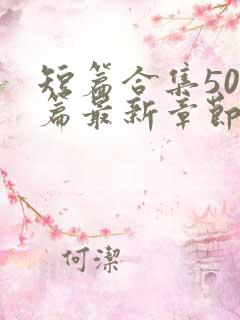 短篇合集50
篇最新章節
何潔